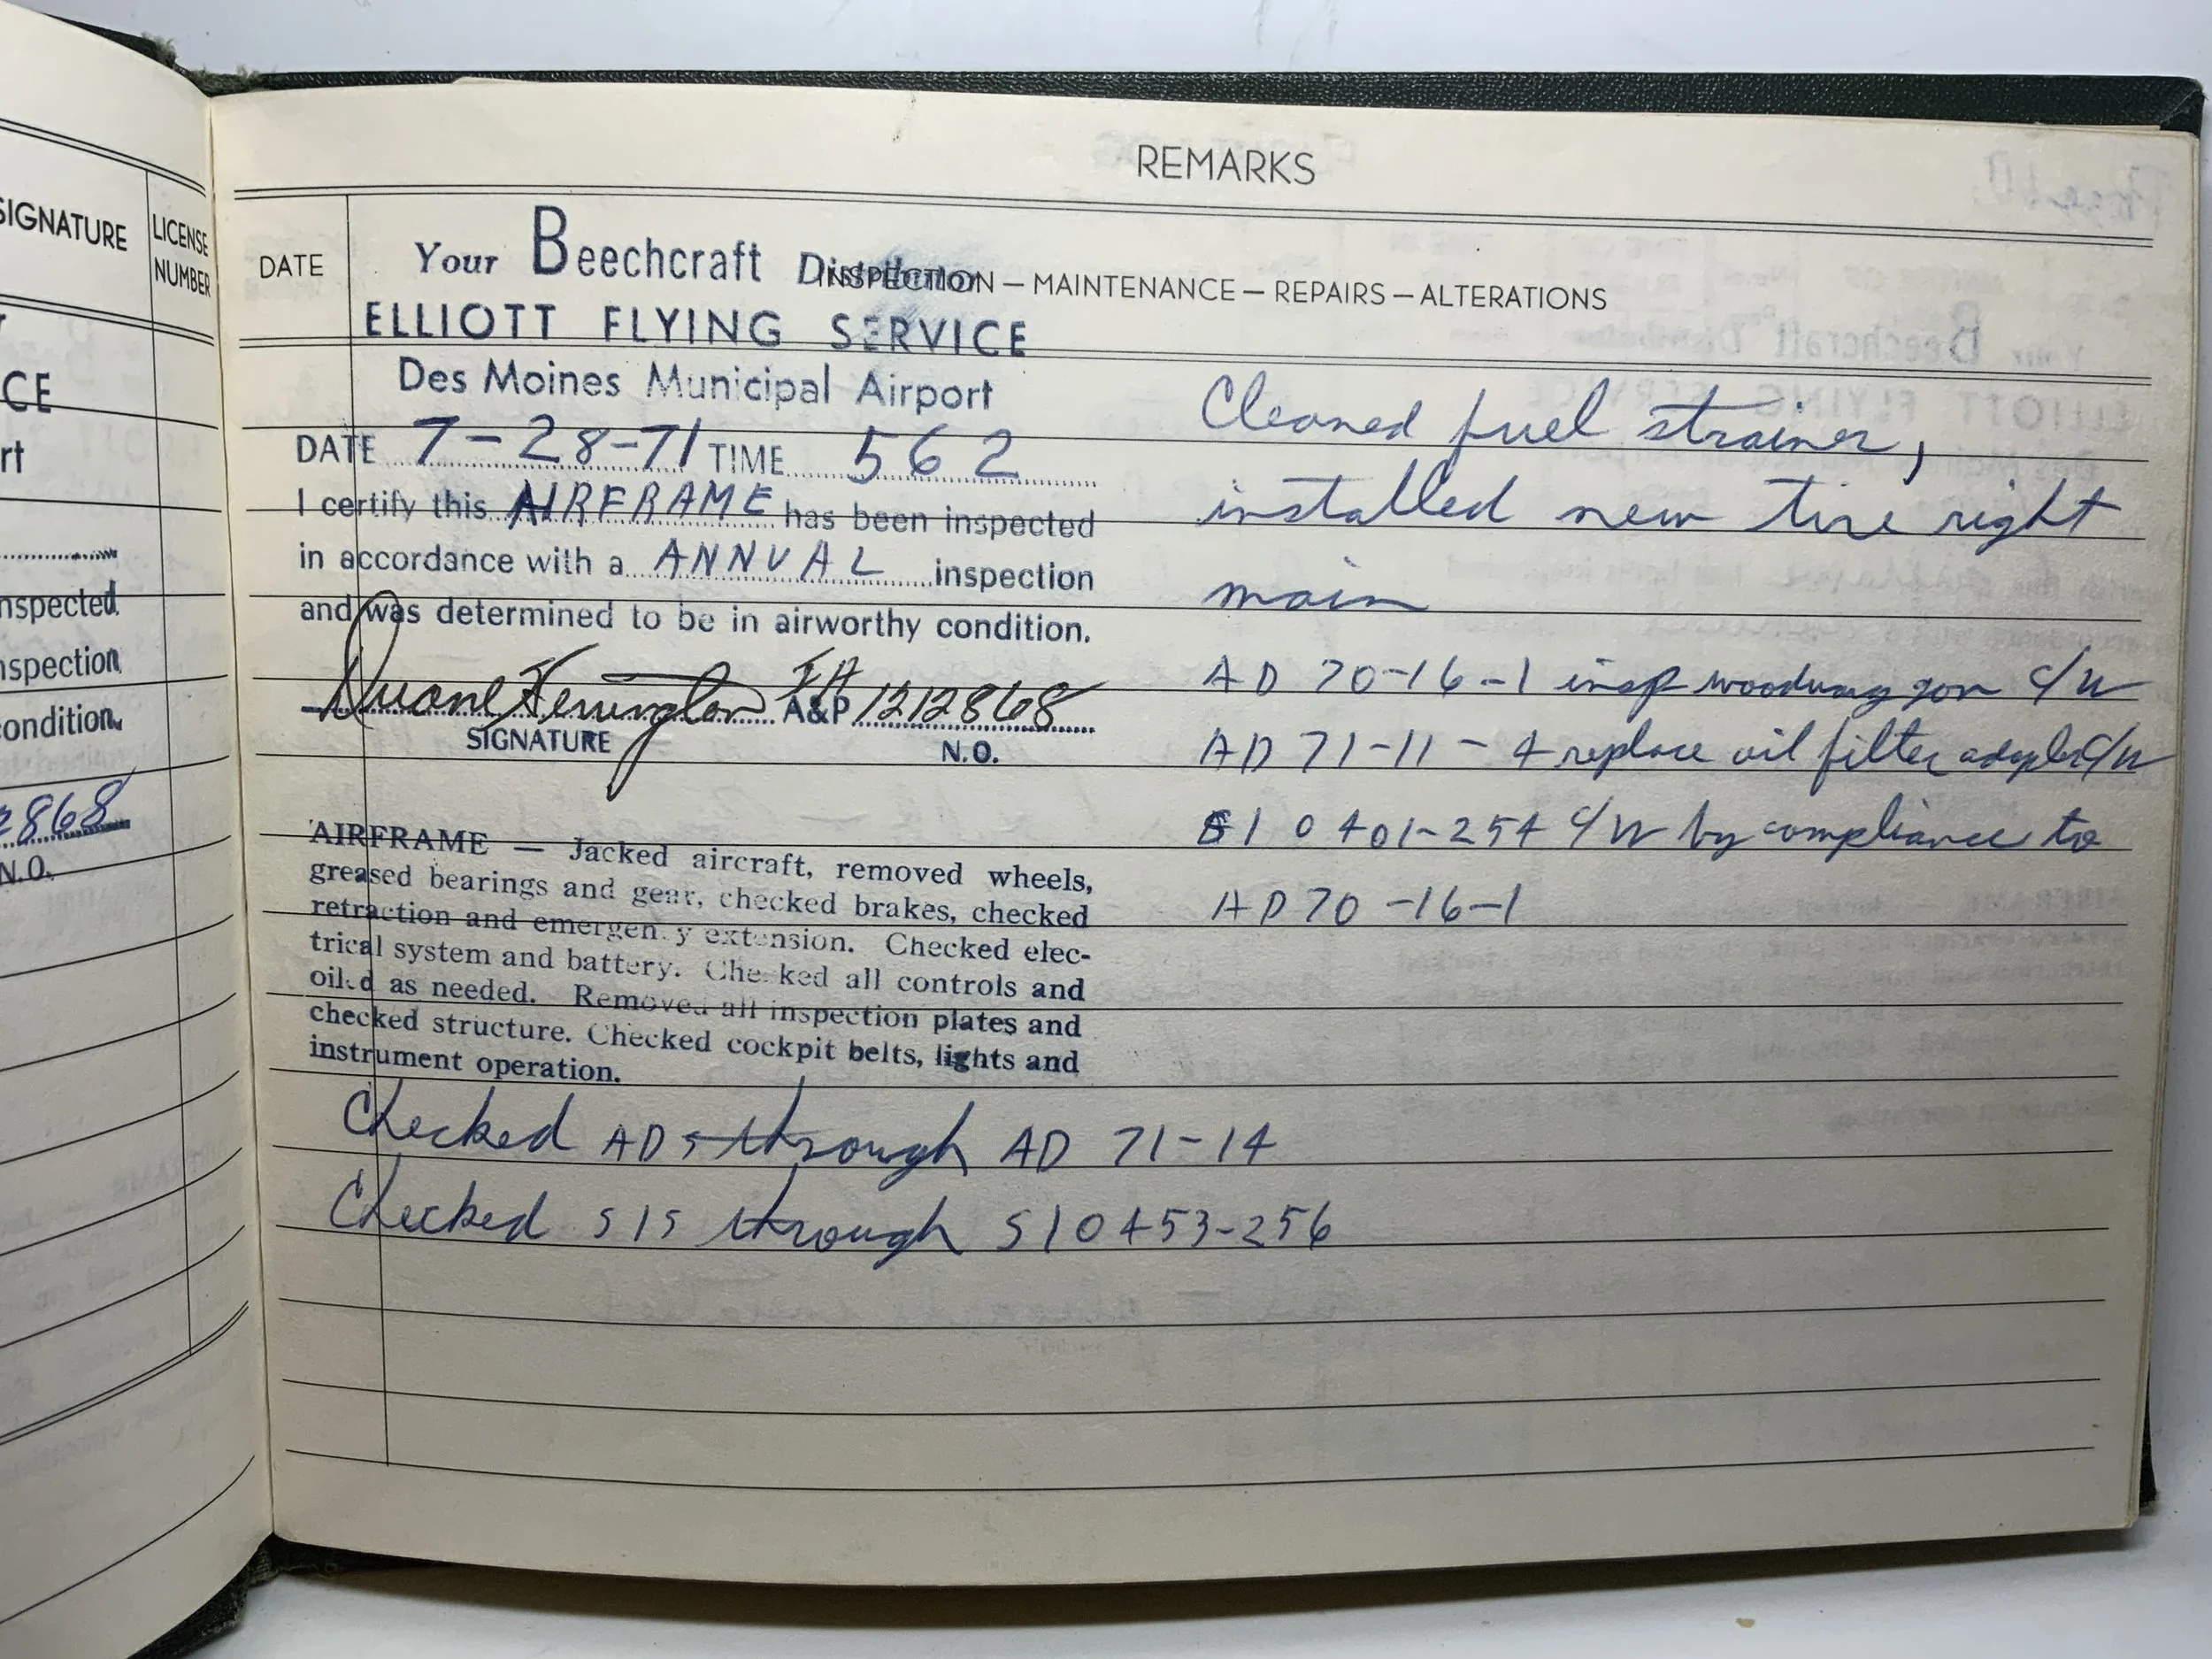 SIGNATURE
LICENSE
NUMBER
CE
rt
nspected
nspection
condition.
2868
N.O.
REMARKS
DATE
INSPECTION — MAINTENANCE — REPAIRS — ALTERATIONS
Your Beechcraft Distributor
ELLIOTT FLYING SERVICE
Des Moines Municipal Airport
DATE 7-28-71 TIME 562
I certify this AIRFRAME has been inspected
in accordance with a ANNUAL inspection
and was determined to be in airworthy condition.
Duane Herrington IA A&P 1212868
SIGNATURE N.O.
AIRFRAME — Jacked aircraft, removed wheels,
greased bearings and gear, checked brakes, checked
retraction and emergency extension. Checked elec-
trical system and battery. Checked all controls and
oiled as needed. Removed all inspection plates and
checked structure. Checked cockpit belts, lights and
instrument operation.
Checked ADs through AD 71-14
Checked SIS through SI 0453-256
Cleaned fuel strainer,
installed new tire right
main
AD 70-16-1 insp c/w
AD 71-11-4 replace oil filter c/w
SI 0401-254 c/w by compliance to
AD 70-16-1